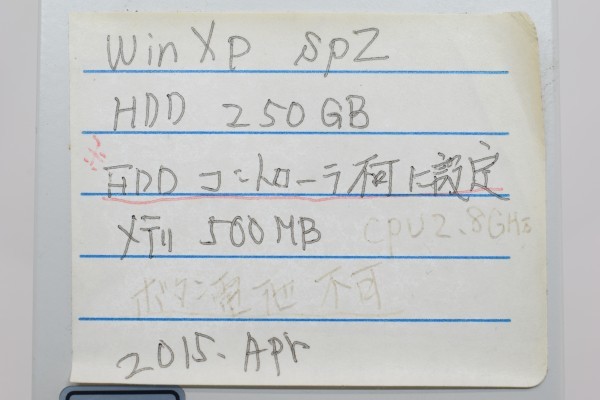 Win Xp SP2
HDD 250GB
※ HDD コントローラ 不可に設定
メモリ 500MB CPU 2.8GHz
ボタン電池 不可
2015. Apr